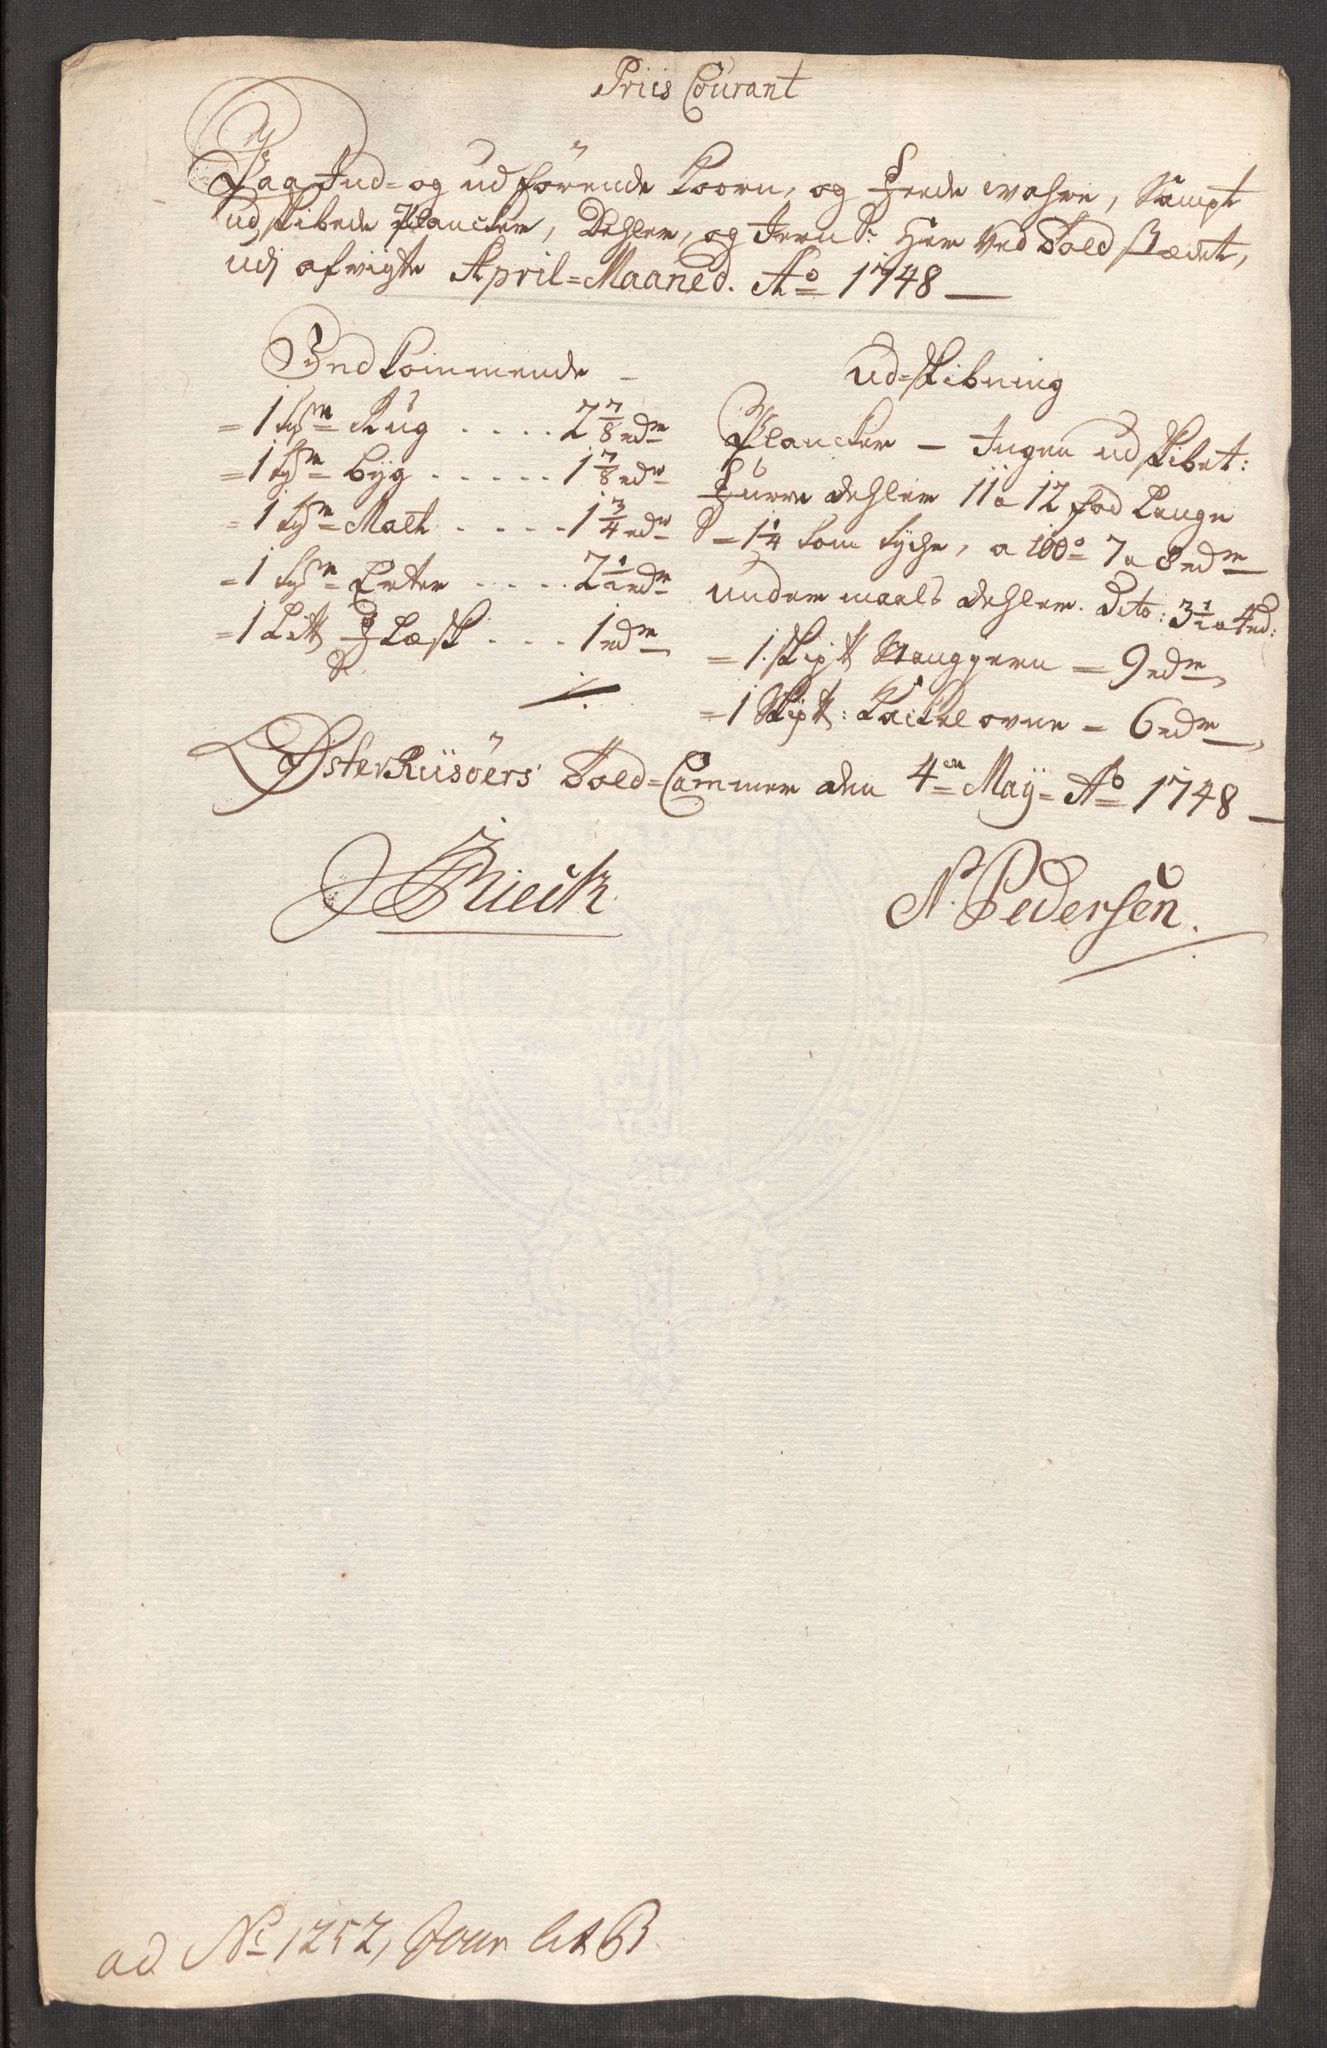 Priis Courant
Paa Ind= og udförende Koorn, og Feede wahre, Sampt
udskibede Plancker, Dehler, og Jern &: Her Ved Told stædet,
udj afvigte April=Maaned. Ao 1748
Indkommende
= 1 Tønde Rüg . . . . 2 7/8 rdr
= 1 Tdr Byg . . . . . 1 7/8 rdr
= 1 Tdr Malt . . . . . 1 3/4 rdr
= 1 Tdr Erter . . . . . 2 1/2 rdr
= 1 Litt Flæsk . . . 1 rdr
Ud=skibning
Plancker — Ingen udskibet:
Furre dehler 11 a 12 fod Lange
& = 1 1/4 tom tyche, a 100de 7 a 8 rdr
under maals dehler. dito: 3 1/2 a 4 rd:
= 1. Skipt Stangjern = 9 rdr
= 1 Skipt: Kackelovne = 6 rdr
ØsterRiisöers Told=Cammer den 4en Maÿ= Ao 1748
N. Pedersen.
ad No 1252, Jour lit B